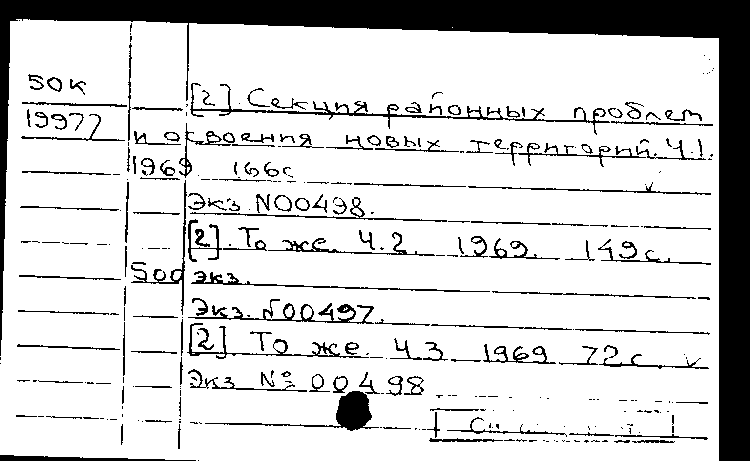 50к
[2]. Секция районных проблем
19977
и освоения новых территорий. Ч.1.
1969 166с
Экз N00498.
[2]. То же. Ч.2. 1969. 149с.
500 экз.
Экз. №00497.
[2]. То же. Ч.3. 1969 72с.
Экз №00498